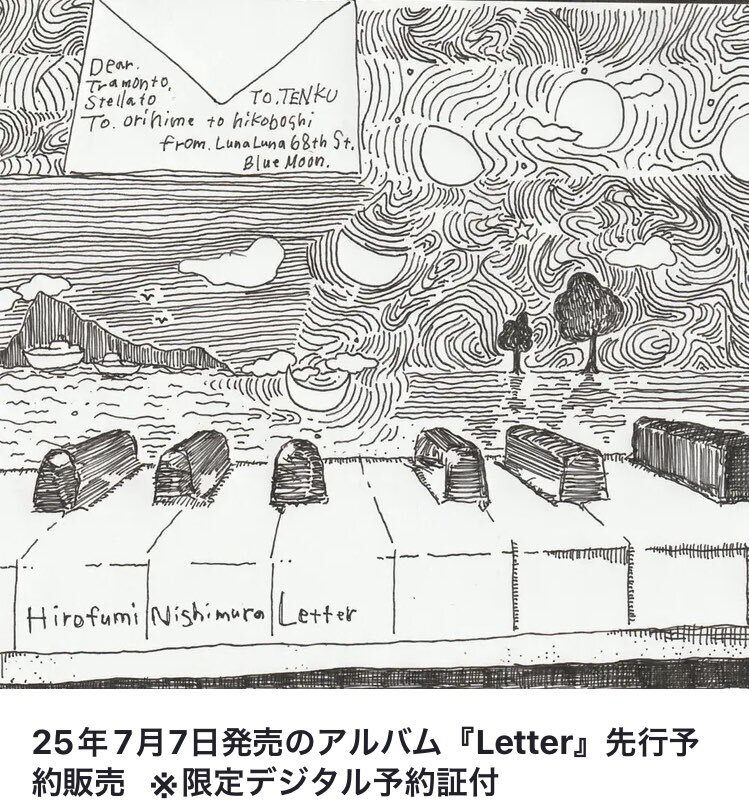 Dear.
Tramonto.
Stellato
To.TENKU
To. orihime to hikoboshi
from. LunaLuna68th St.
Blue Moon.
Hirofumi Nishimura Letter
25年7月7日発売のアルバム『Letter』先行予
約販売 ※限定デジタル予約証付